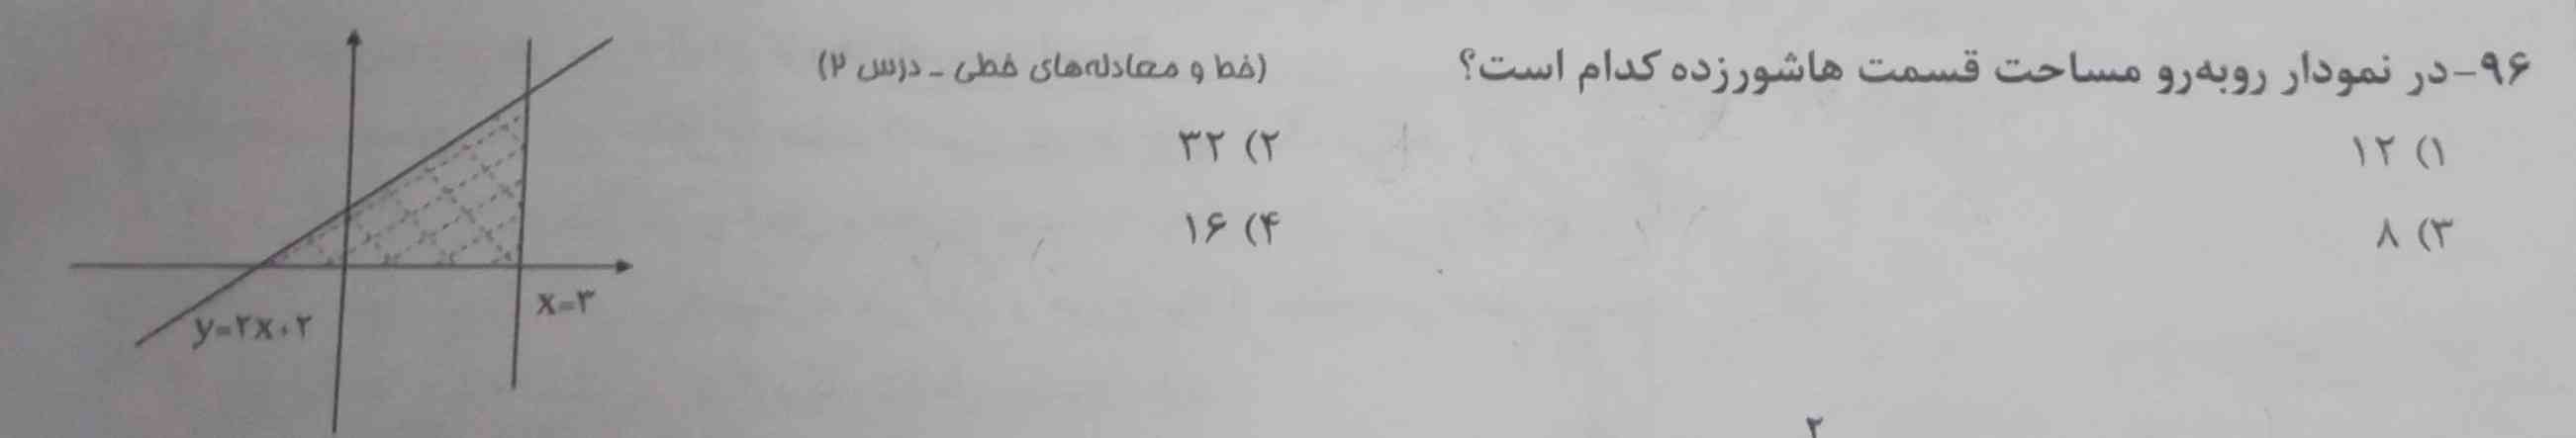 ۹۶-در نمودار روبه‌رو مساحت قسمت هاشورزده کدام است؟ (خط و معادله‌های خطی - درس ۲)
۱) ۱۲ ۲) ۳۲
۳) ۸ ۴) ۱۶
x=۳
y=۲x+۲
۲